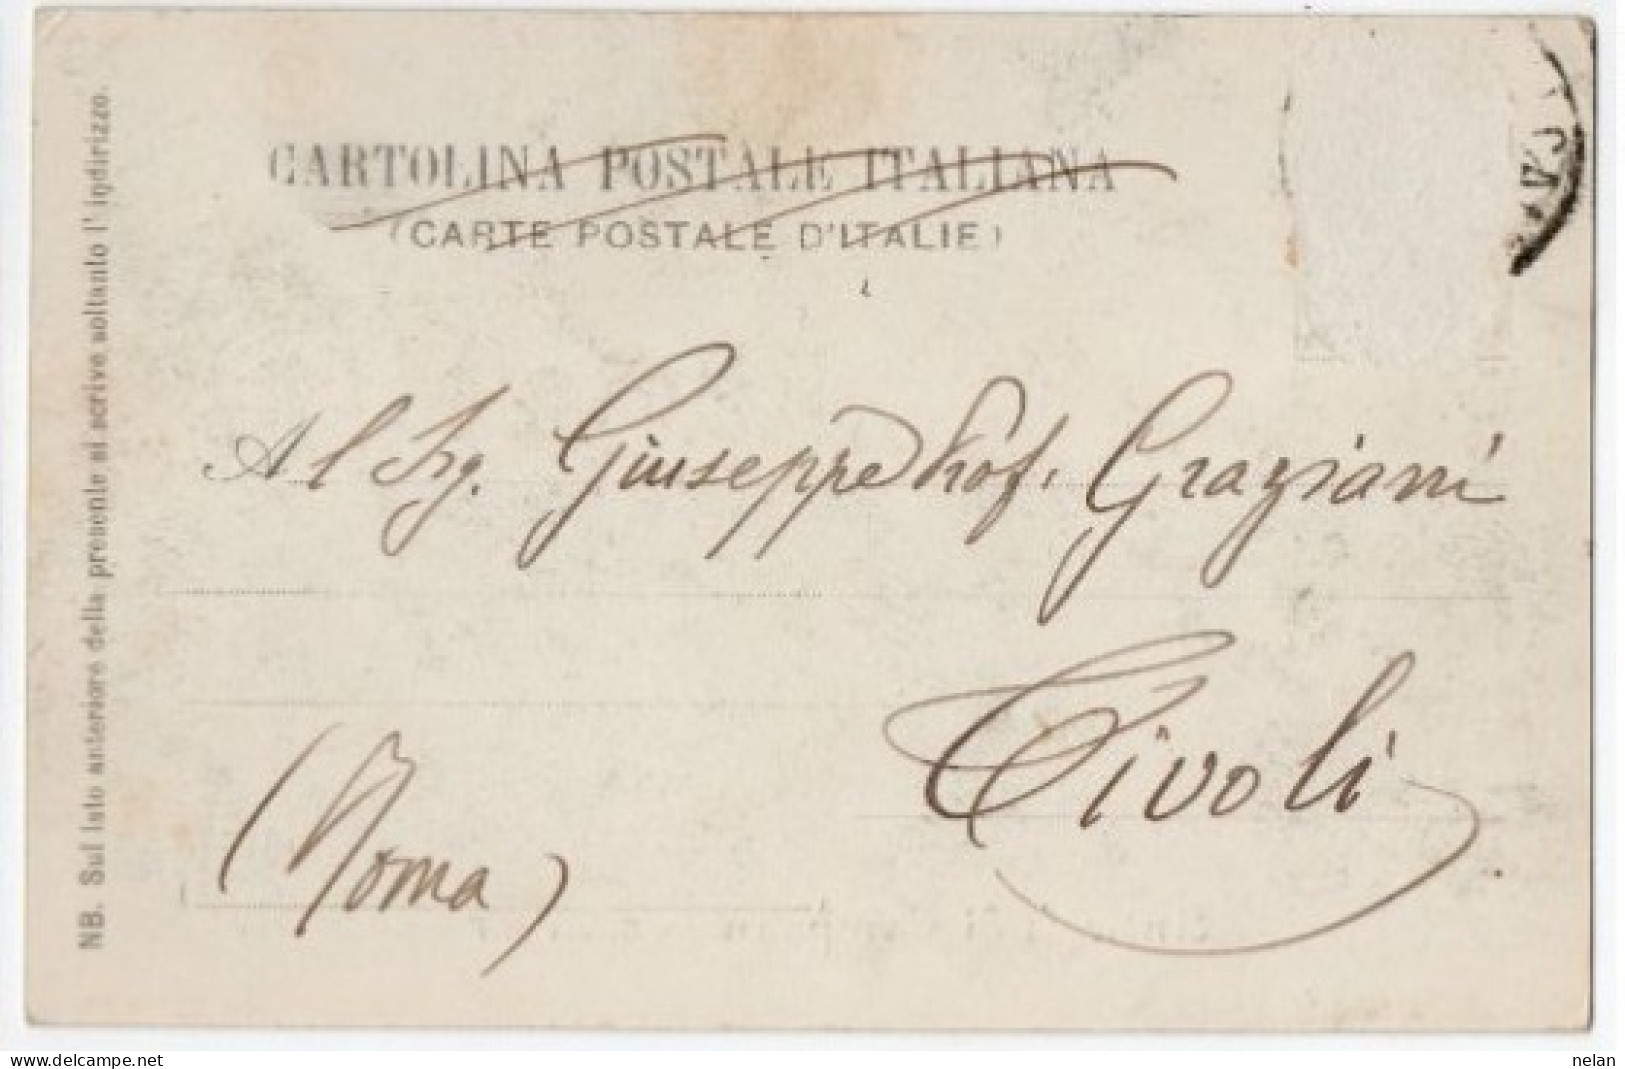 CARTOLINA POSTALE ITALIANA
(CARTE POSTALE D'ITALIE)
Al Sig. Giuseppe Prof. Graziani
Tivoli
(Roma)
NB. Sul lato anteriore della presente si scrive soltanto l'indirizzo.
delcampe.net
nelan